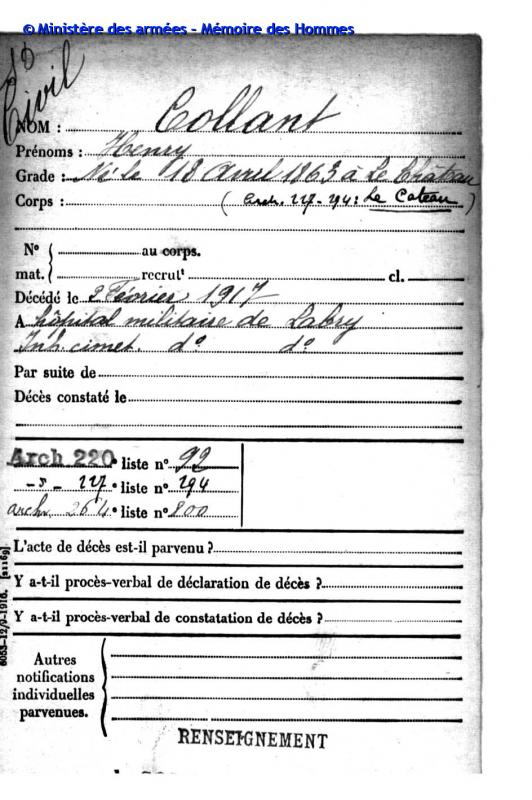 © Ministère des armées - Mémoire des Hommes
Civil
NOM : Collant
Prénoms : Henry
Grade : Né le 18 Avril 1863 à Le Château
Corps : (arch. 227-194: Le Cateau)
N° au corps.
mat. recrutt cl.
Décédé le 2 Février 1917
A hôpital militaire de Labry
Inh. cimet. do do
Par suite de
Décès constaté le
Arch 220 • liste n° 92
-s- 227 • liste n° 194
arch. 264 • liste n° 800
L'acte de décès est-il parvenu ?
Y a-t-il procès-verbal de déclaration de décès ?
Y a-t-il procès-verbal de constatation de décès ?
6053-12/9-1916. [21169]
Autres
notifications
individuelles
parvenues.
RENSEIGNEMENT